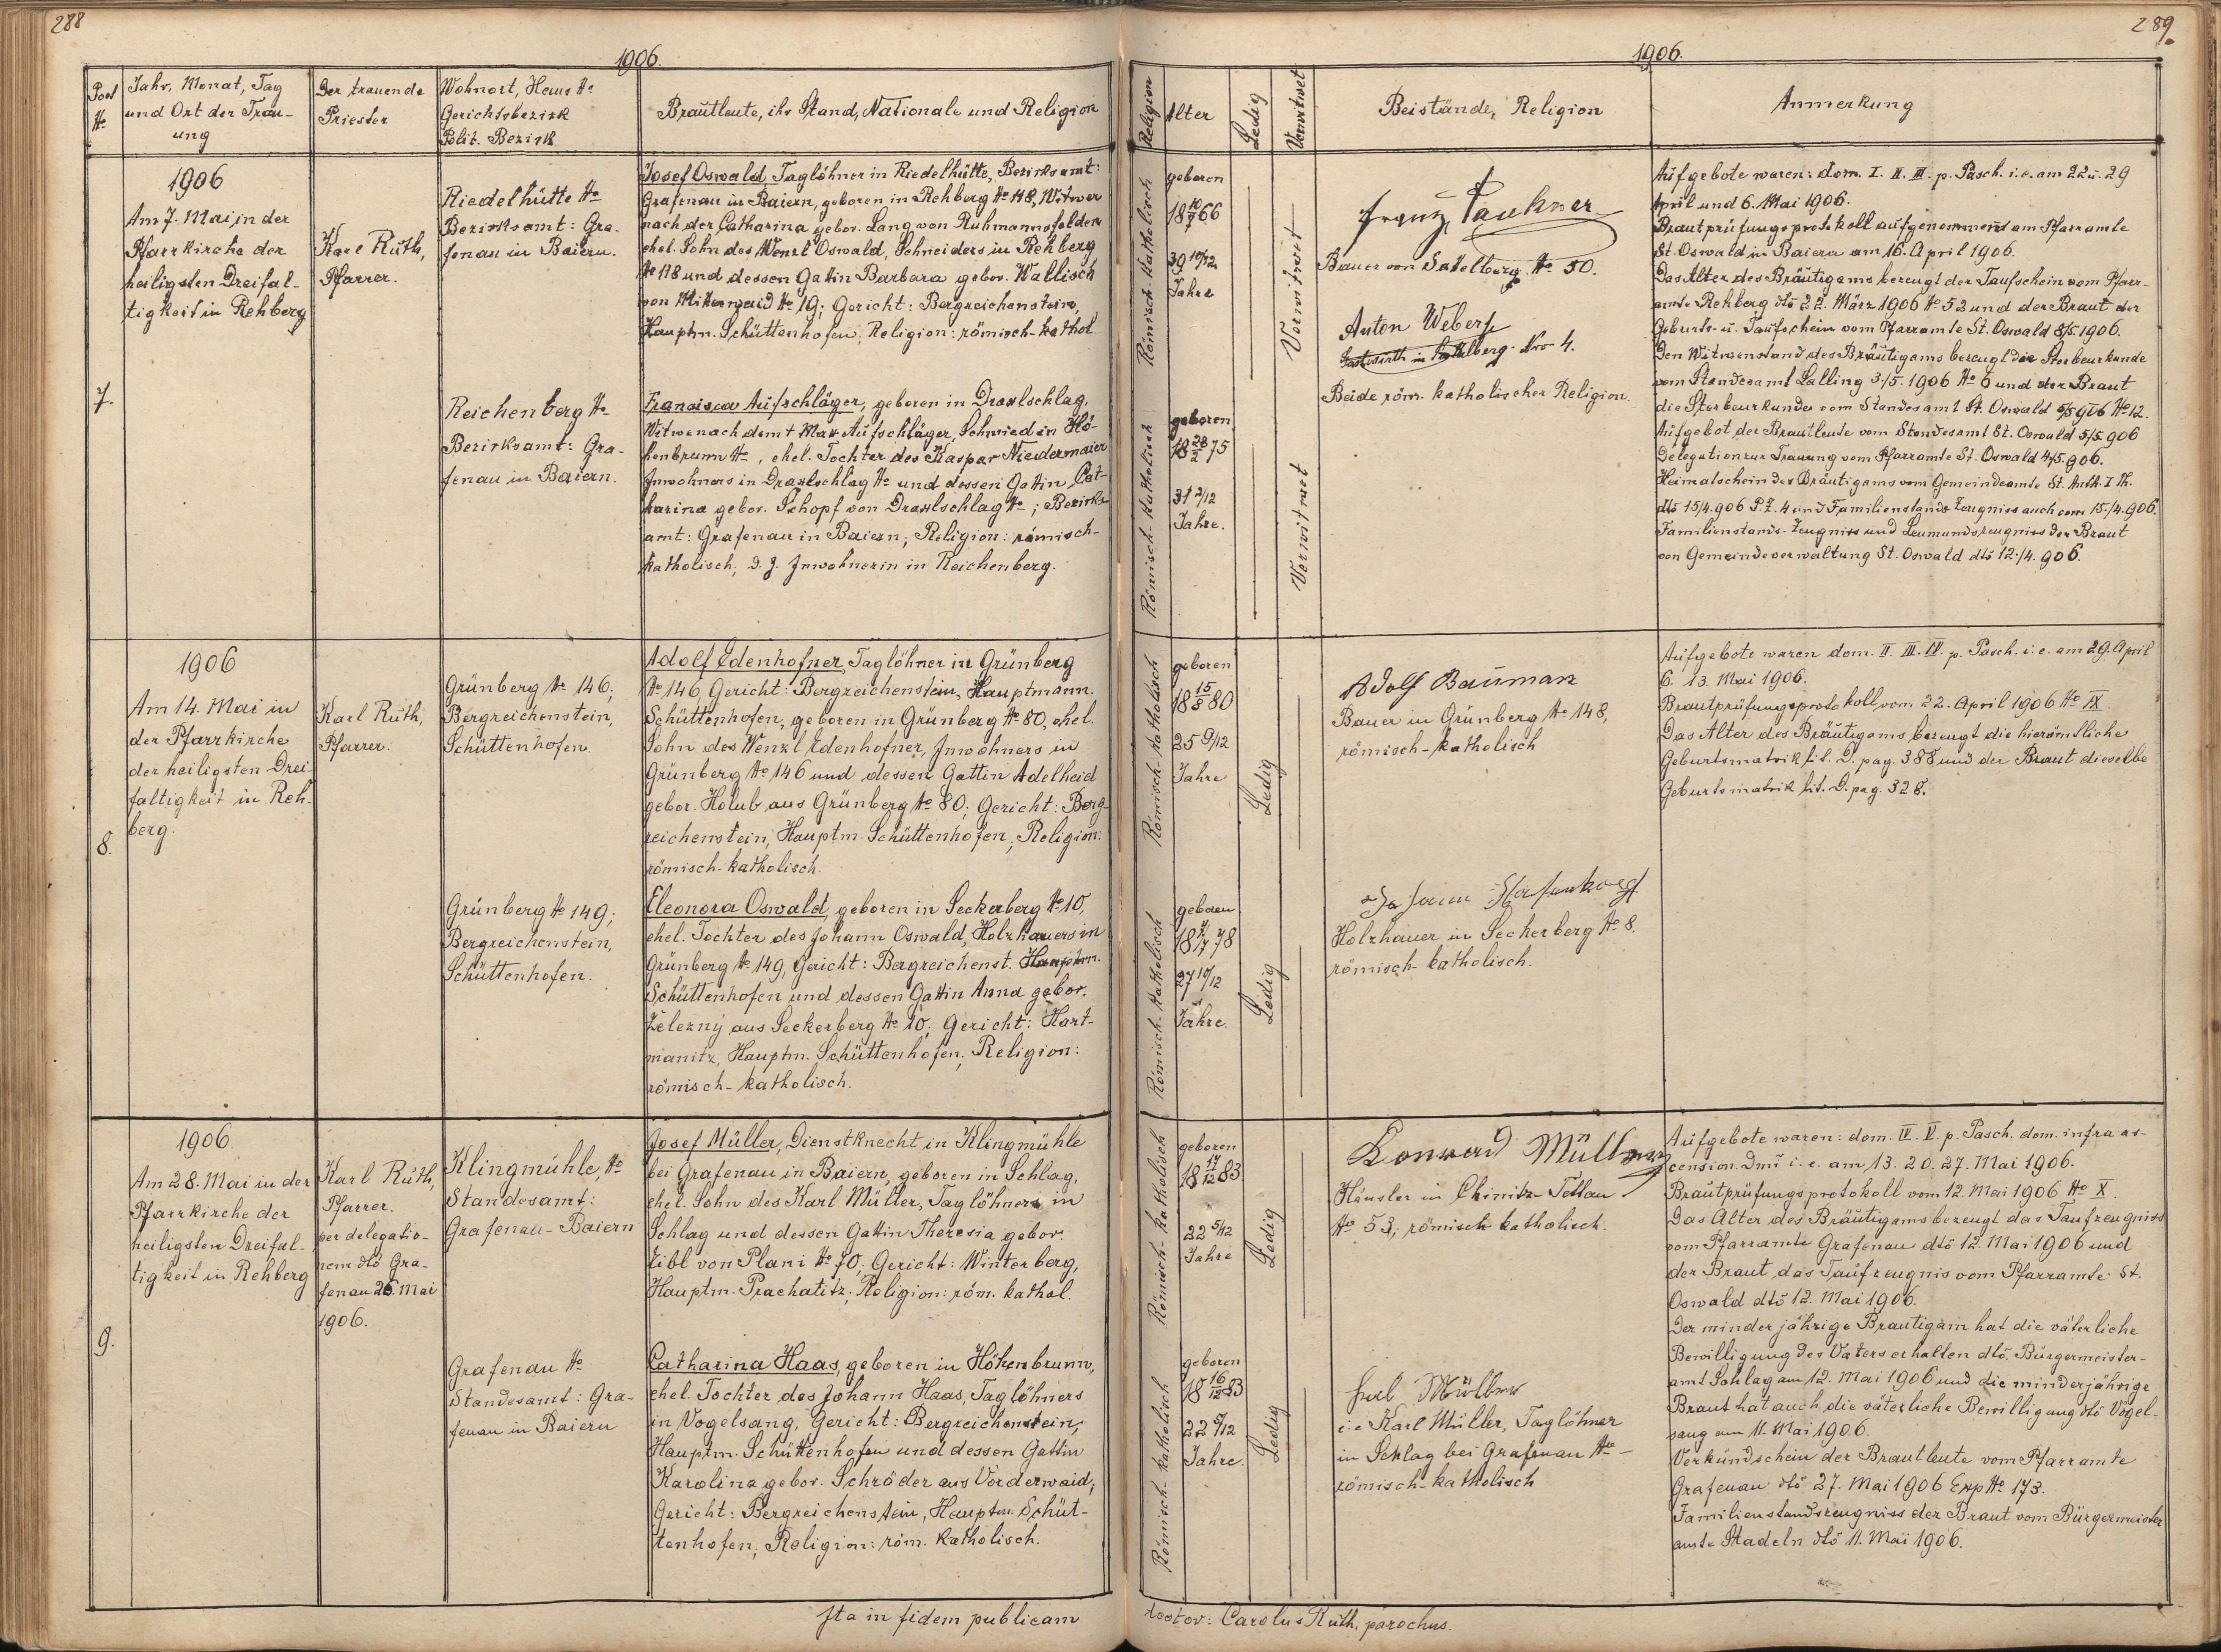 288
1906.
Post
No
Jahr, Monat, Tag
und Ort der Trau-
ung
Der trauende
Priester
Wohnort, Haus No
Gerichtsbezirk
Polit. Bezirk
Brautleute, ihr Stand, Nationale und Religion
7.
1906
Am 7. Mai in der
Pfarrkirche der
heiligsten Dreifal-
tigkeit in Rehberg
Karl Ruth,
Pfarrer.
Riedelhütte No
Bezirksamt: Gra-
fenau in Baiern.
Josef Oswald, Taglöhner in Riedelhütte, Bezirksamt:
Grafenau in Baiern, geboren in Rehberg No 118, Witwer
nach der Catharina gebor. Lang von Ruhmannsfelden
ehel. Sohn des Wenzl Oswald, Schneiders in Rehberg
No 118 und dessen Gattin Barbara gebor. Wallisch
von No 19; Gericht: Bergreichenstein,
Hauptm. Schüttenhofen, Religion: römisch-kathol.
Reichenberg No
Bezirksamt: Gra-
fenau in Baiern.
Francisca Aufschläger, geboren in Draxlschlag,
Witwe nach dem † Max Aufschläger, Schmied in Hö-
henbrunn No , ehel. Tochter des Kaspar Niedermaier
Inwohners in Draxlschlag No und dessen Gattin Cat-
harina gebor. Schopf von Draxlschlag No ; Bezirks-
amt: Grafenau in Baiern; Religion: römisch-
katholisch; d. z. Inwohnerin in Reichenberg.
8.
1906
Am 14. Mai in
der Pfarrkirche
der heiligsten Drei-
faltigkeit in Reh-
berg.
Karl Ruth,
Pfarrer.
Grünberg No 146;
Bergreichenstein,
Schüttenhofen.
Adolf Edenhofner, Taglöhner in Grünberg
No 146, Gericht: Bergreichenstein, Hauptmann.
Schüttenhofen, geboren in Grünberg No 80, ehel.
Sohn des Wenzl Edenhofner, Inwohners in
Grünberg No 146 und dessen Gattin Adelheid
gebor. Holub aus Grünberg No 80; Gericht: Berg-
reichenstein, Hauptm. Schüttenhofen; Religion:
römisch-katholisch.
Grünberg No 149;
Bergreichenstein,
Schüttenhofen.
Eleonora Oswald, geboren in Seckerberg No 10,
ehel. Tochter des Johann Oswald, Holzhauers in
Grünberg No 149, Gericht: Bergreichenst. Hauptm.
Schüttenhofen und dessen Gattin Anna gebor.
Železný aus Seckerberg No 10; Gericht: Hart-
manitz, Hauptm. Schüttenhofen; Religion:
römisch-katholisch.
9.
1906.
Am 28. Mai in der
Pfarrkirche der
heiligsten Dreifal-
tigkeit in Rehberg
Karl Ruth,
Pfarrer.
per delegatio-
nem dto Gra-
fenau 26. Mai
1906.
Klingmühle, No
Standesamt:
Grafenau-Baiern
Josef Müller, Dienstknecht in Klingmühle
bei Grafenau in Baiern, geboren in Schlag,
ehel. Sohn des Karl Müller, Taglöhners in
Schlag und dessen Gattin Theresia gebor.
Zibl von Plani No 70; Gericht: Winterberg,
Hauptm. Prachatitz; Religion: röm. kathol.
Grafenau No
Standesamt: Gra-
fenau in Baiern
Catharina Haas, geboren in Höhenbrunn,
ehel. Tochter des Johann Haas, Taglöhners
in Vogelsang, Gericht: Bergreichenstein,
Hauptm. Schüttenhofen und dessen Gattin
Karolina gebor. Schröder aus Vorderwaid,
Gericht: Bergreichenstein, Hauptm. Schüt-
tenhofen, Religion: röm. katholisch.
Ita in fidem publicam
289.
1906.
Religion
Alter
Ledig
Verwitwet
Beistände, Religion
Anmerkung
Römisch-katholisch
geboren
18 10/7 66
39 10/12
Jahre
Verwitwet
Franz Paukner
Bauer von Sattelberg No 50.
Anton Weber
Gastwirth in Sattelberg Nro 4.
Beide röm. katholischer Religion.
Römisch-katholisch
geboren
18 28/2 75
31 2/12
Jahre.
Verwitwet
Aufgebote waren: dom. I. II. III. p. Pasch. i. e. am 22. u. 29
April und 6. Mai 1906.
Brautprüfungsprotokoll aufgenommen am Pfarramte
St. Oswald in Baiern am 16. April 1906.
Das Alter des Bräutigams bezeugt der Taufschein vom Pfarr-
amte Rehberg dto 22. März 1906 No 52 und der Braut der
Geburts- u. Taufschein vom Pfarramte St. Oswald 8/5. 1906.
Den Witwenstand des Bräutigams bezeugt die Sterbeurkunde
vom Standesamt Lalling 3./5. 1906 No 6 und der Braut
die Sterbeurkunde vom Standesamt St. Oswald 5/5 906 No 12.
Aufgebot der Brautleute vom Standesamt St. Oswald 5/5. 906
Delegation zur Trauung vom Pfarramte St. Oswald 4/5. 906.
Heimatschein des Bräutigams vom Gemeindeamte St.
dto 15/4. 906 P. Z. 4 und Familienstands Zeugniss auch vom 15./4. 906.
Familienstands-Zeugniss und Leumundszeugniss der Braut
von Gemeindeverwaltung St. Oswald dto 12./4. 906.
Römisch-katholisch
geboren
18 15/8 80
25 9/12
Jahre
Ledig
Adolf Bauman
Bauer in Grünberg No 148,
römisch-katholisch
Aufgebote waren dom. II. III. IV. p. Pasch. i. e. am 29. April
6. 13. Mai 1906.
Brautprüfungsprotokoll vom 22. April 1906 No IX.
Das Alter des Bräutigams bezeugt die hierämtliche
Geburtsmatrik lit. D. pag. 388 und der Braut dieselbe
Geburtsmatrik lit. D. pag. 328.
Römisch-katholisch
geboren
27 10/12
Jahre.
Ledig
Holzhauer in Seckerberg No 8.
römisch-katholisch.
Römisch-katholisch
geboren
18 17/12 83
22 5/12
Jahre
Ledig
Konrad Müller
Häusler in Chinitz-Tettau
No 53, römisch katholisch.
Aufgebote waren: dom. IV. V. p. Pasch. dom. infra as-
cension. Dmi i. e. am 13. 20. 27. Mai 1906.
Brautprüfungsprotokoll vom 12. Mai 1906 No X.
Das Alter des Bräutigams bezeugt das Taufzeugniss
vom Pfarramte Grafenau dto 12. Mai 1906 und
der Braut das Taufzeugnis vom Pfarramte St.
Oswald dto 12. Mai 1906.
Der minderjährige Bräutigam hat die väterliche
Bewilligung des Vaters erhalten dto. Bürgermeister-
amt Schlag am 12. Mai 1906 und die minderjährige
Braut hat auch die väterliche Bewilligung dto Vogel-
sang am 11. Mai 1906.
Verkündschein der Brautleute vom Pfarramte
Grafenau dto 27. Mai 1906 Exp No 173.
Familienstandszeugniss der Braut vom Bürgermeister
amte Stadeln dto 11. Mai 1906.
Römisch-katholisch
geboren
18 16/12 83
22 5/12
Jahre.
Ledig
Karl Müller
i. e. Karl Müller, Taglöhner
in Schlag bei Grafenau No –
römisch-katholisch
Carolus Ruth, parochus.